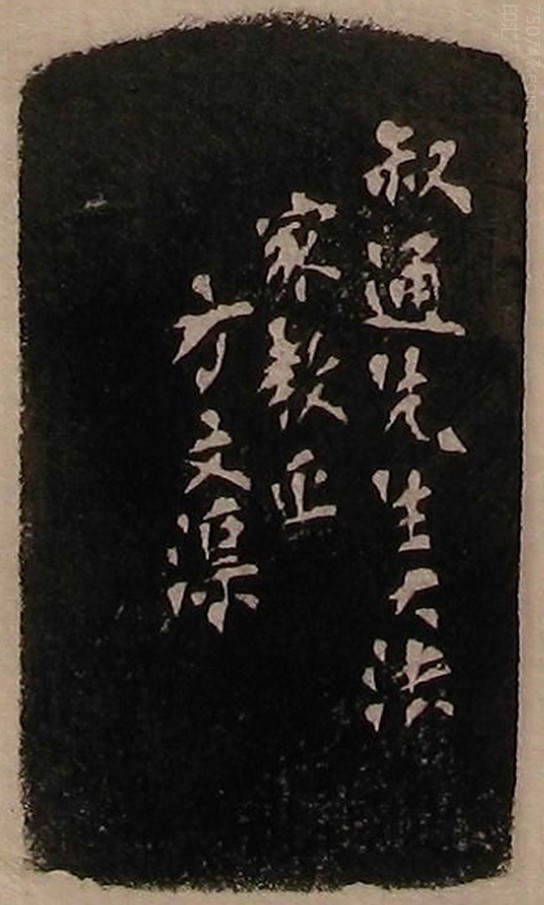 叔通先生大法
家教正
方文㵄